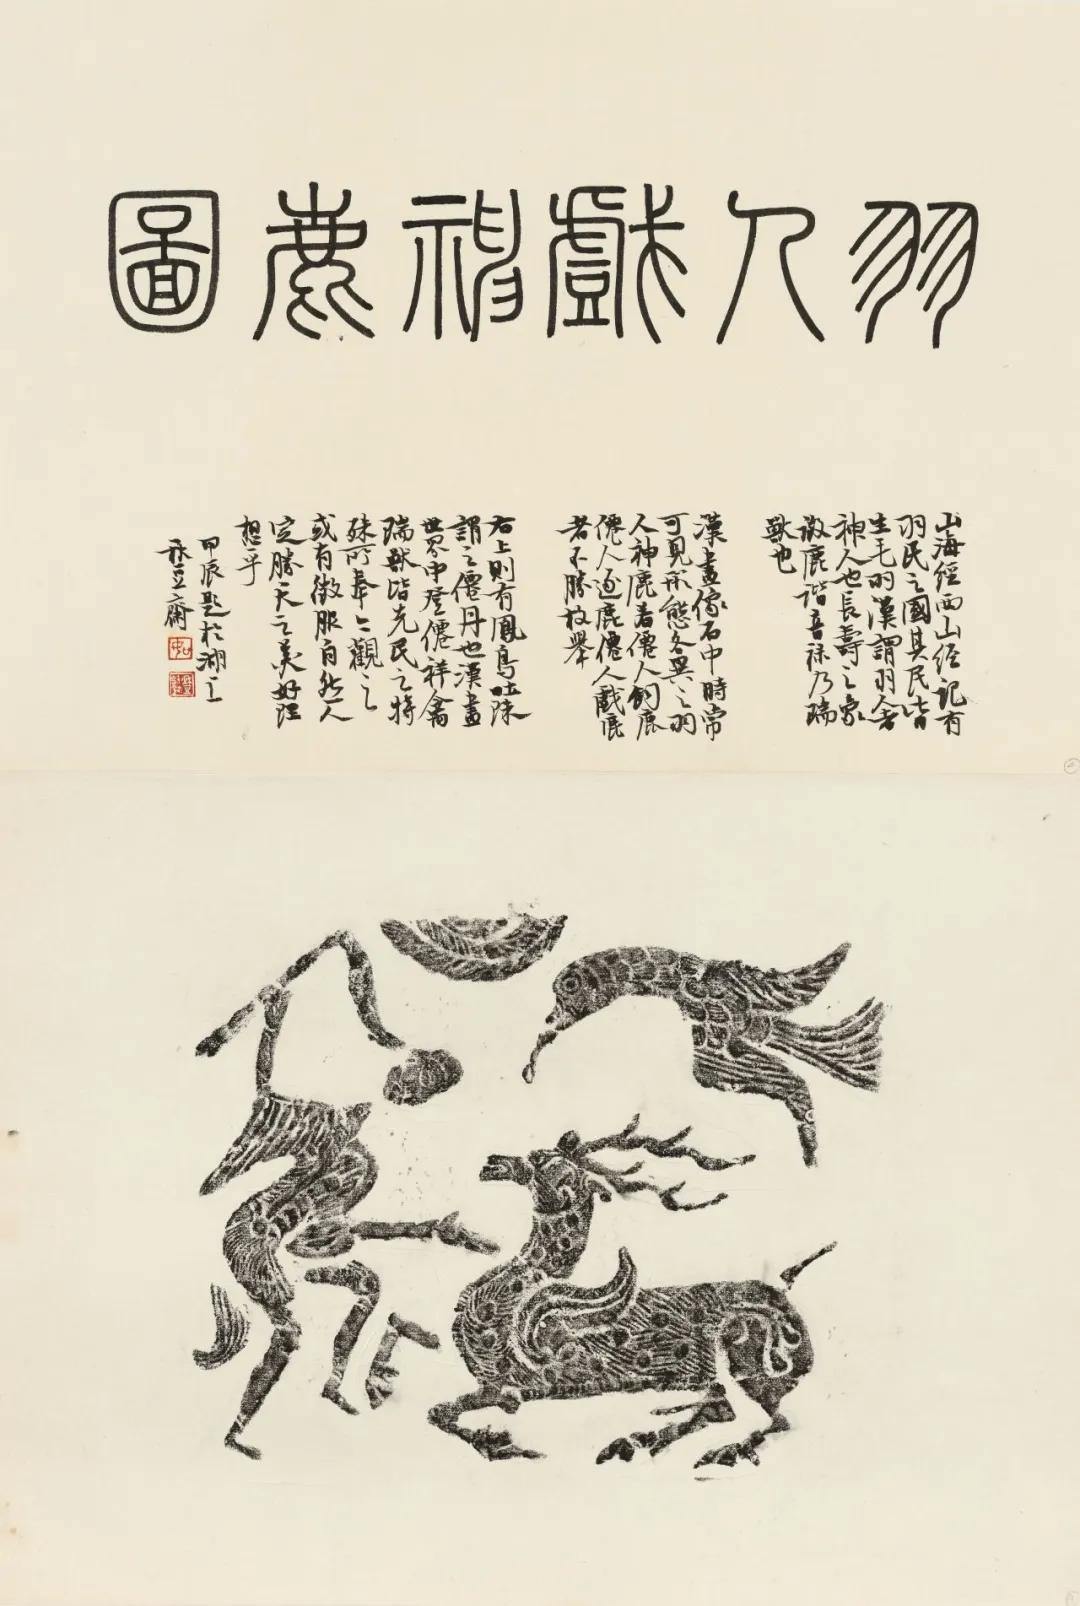 羽人戲神鹿圖
山海經西山經記有
羽民之國其民皆
生毛羽漢謂羽人者
神人也長壽之象
徵鹿諧音祿乃瑞
獸也
漢畫像石中時常
可見形態各異之羽
人神鹿若僊人飼鹿
僊人逐鹿僊人戲鹿
者不勝枚舉
右上則有鳳鳥吐珠
謂之僊丹也漢畫
世界中登僊祥禽
瑞獸皆先民之特
殊所奉今觀之
或有徵服自然人
定勝天之美好理
想乎
甲辰題於湖上
齋